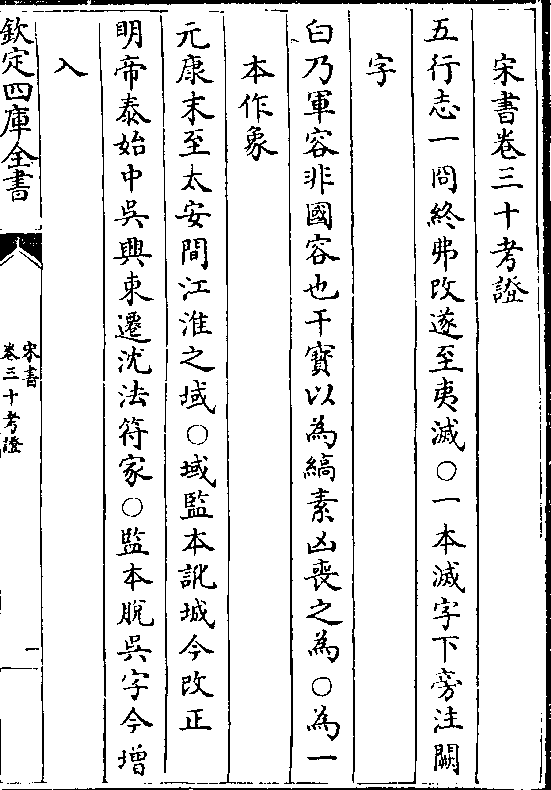 宋書卷三十考證
五行志一罔終弗改遂至夷滅○一本滅字下旁注闕
字
白乃軍容非國容也干寶以為縞素凶喪之為○為一
本作象
元康末至太安間江淮之域○域監本訛城今改正
明帝泰始中吳興東遷沈法符家○監本脫吳字今增
入
欽定四庫全書
宋書
卷三十考證
一